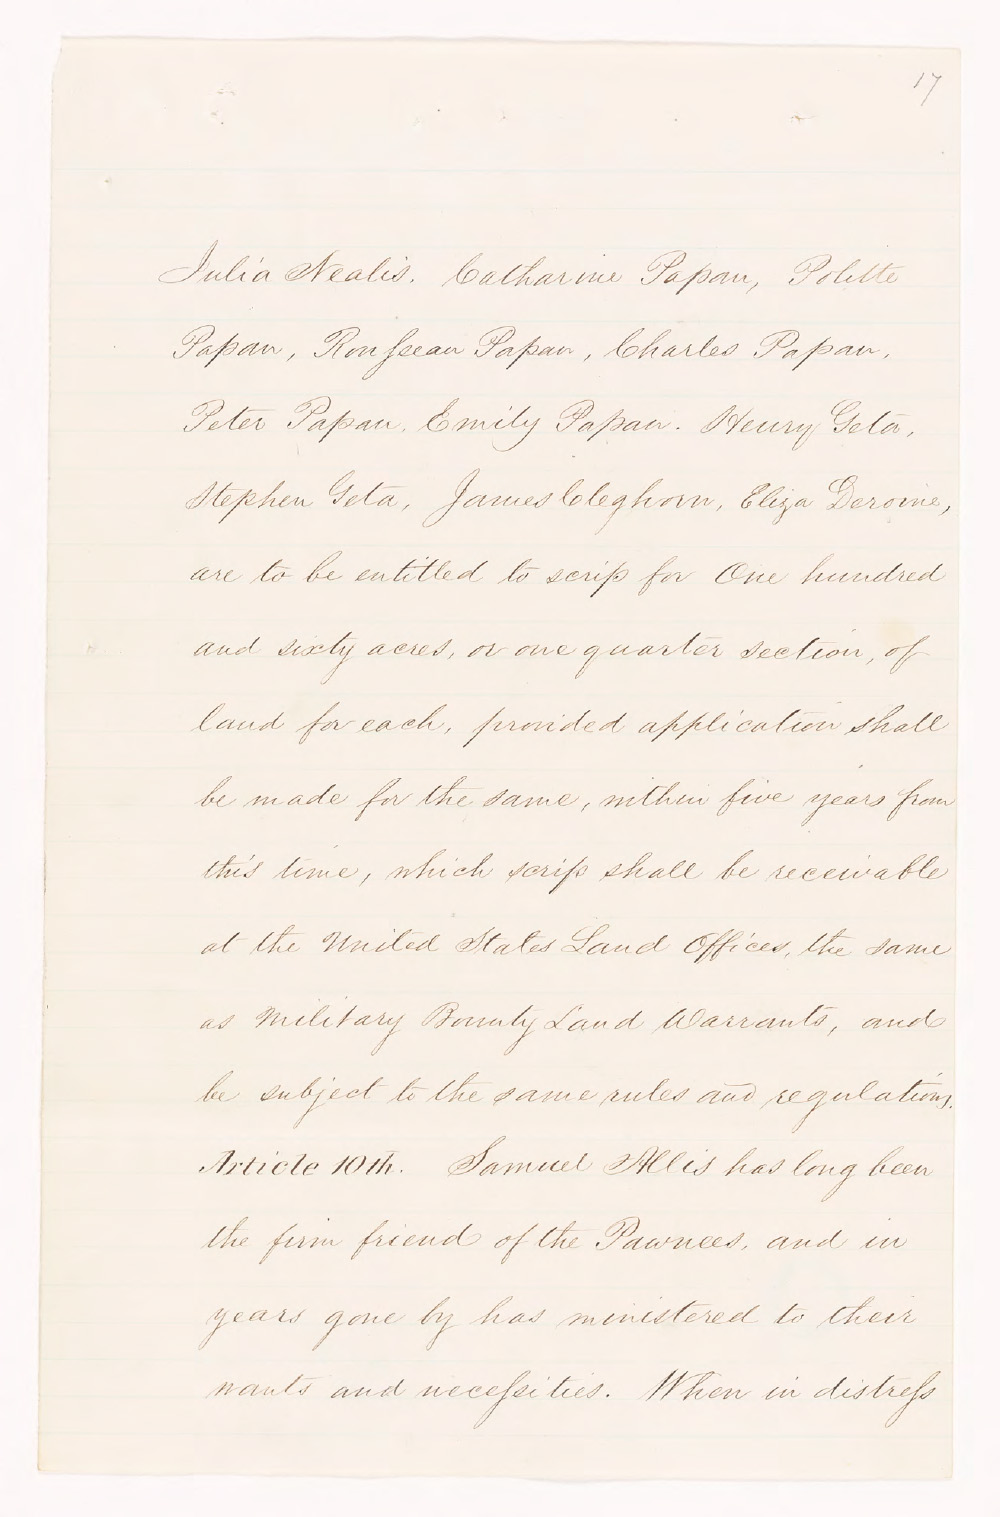 17
Julia Nealis. Catharine Papan, Politte
Papan, Rousseau Papan, Charles Papan,
Peter Papan, Emily Papan. Henry Geta,
Stephen Geta, James Cleghorn, Eliza Deroine,
are to be entitled to scrip for One hundred
and sixty acres, or one quarter section, of
land for each, provided application shall
be made for the same, within five years from
this time, which scrip shall be receivable
at the United States Land Offices, the same
as Military Bounty Land Warrants, and
be subject to the same rules and regulations.
Article 10th. Samuel Allis has long been
the firm friend of the Pawnees, and in
years gone by has ministered to their
wants and necessities. When in distress